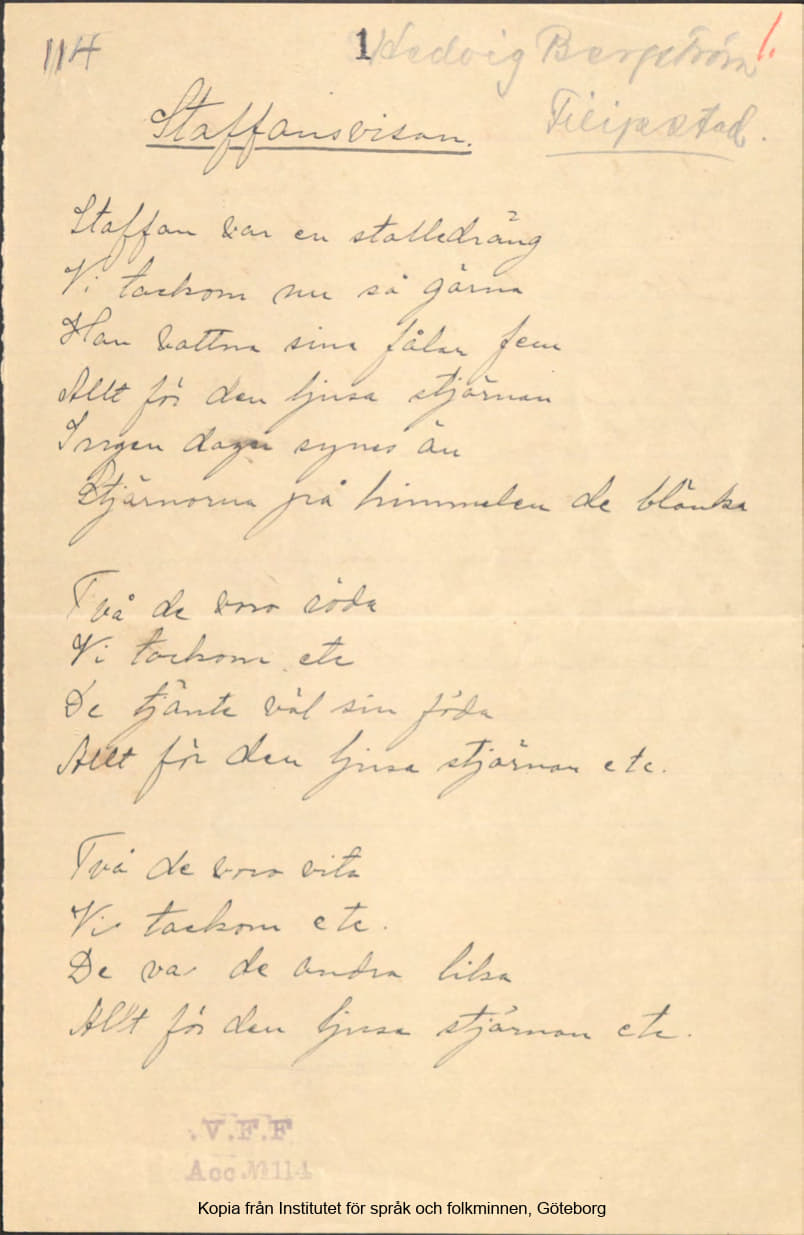 114
1
Hedvig Bergström 1.
Filipstad.
Staffansvisan.
Staffan var en stalledräng
Vi tackom nu så gärna
Han vattna sina fålar fem
Allt för den ljusa stjärnan
Ingen dager synes än
Stjärnorna på himmelen de blänka
Två de voro röda
Vi tackom etc
De tjänte väl sin föda
Allt för den ljusa stjärnan etc.
Två de voro vita
Vi tackom etc.
De va de andra lika
Allt för den ljusa stjärnan etc.
V.F.F
Acc. N 114
Kopia från Institutet för språk och folkminnen, Göteborg